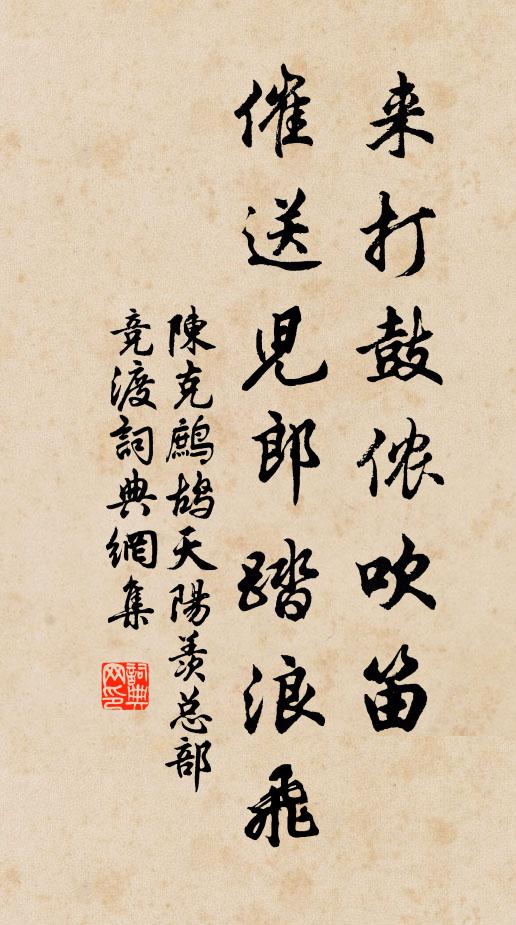 来打鼓侬吹笛
催送児郎踏浪飛
陳克鷓鴣天陽羨总部
竞渡詞典網集
詞典
网印